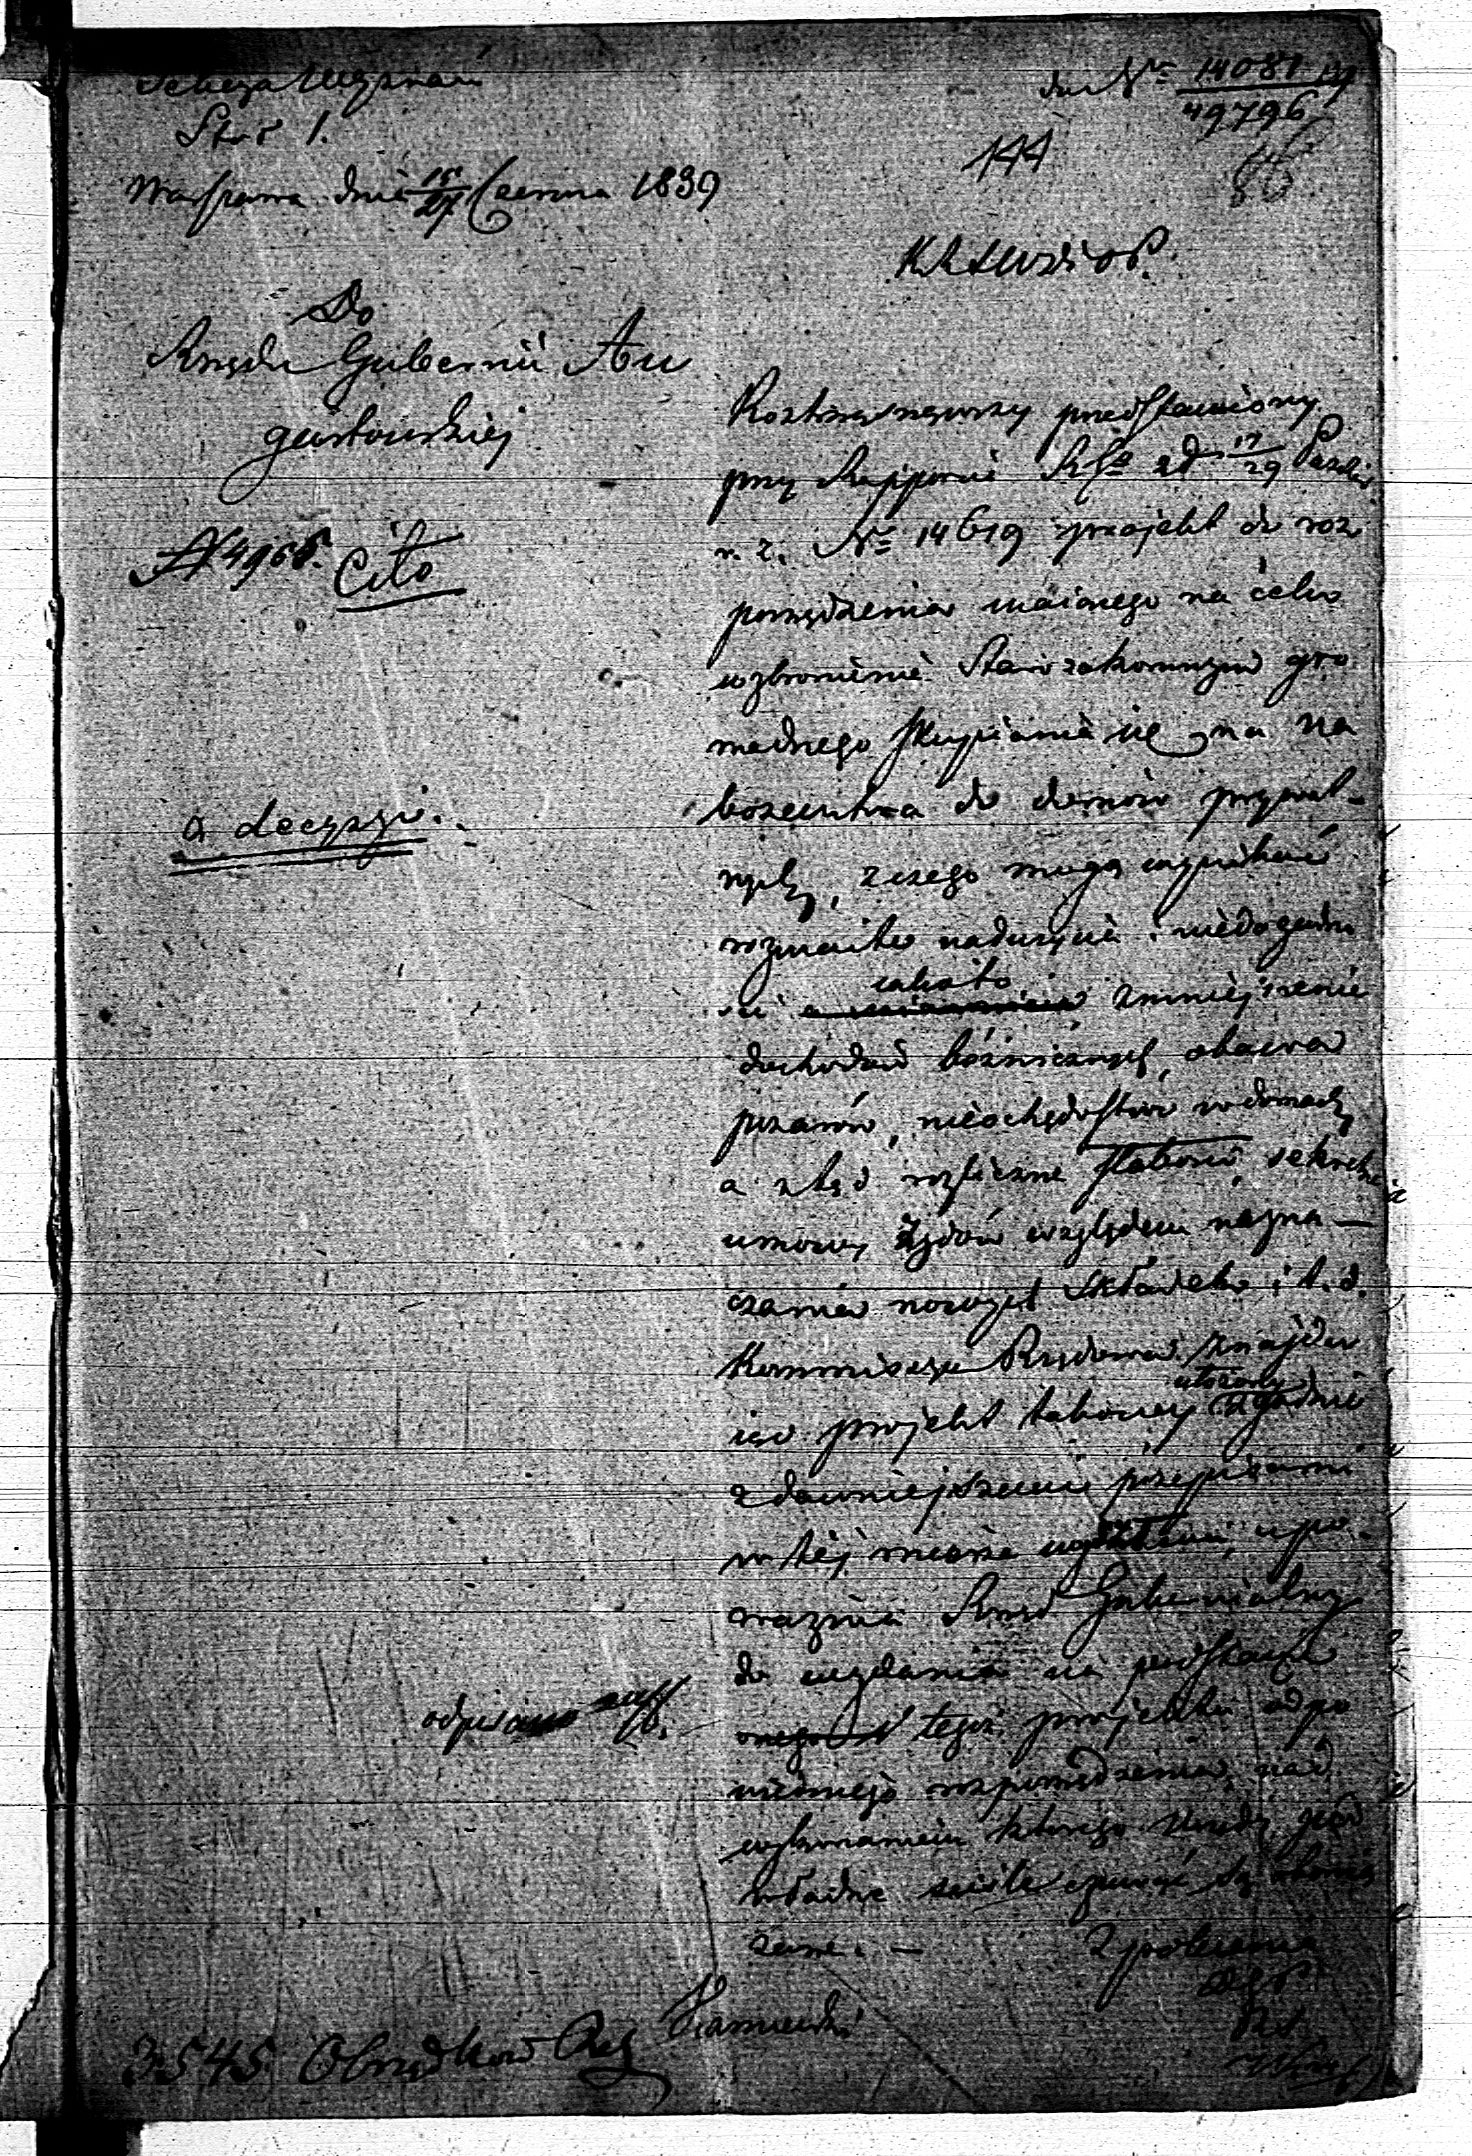 Sekcja Wyznań
Stół 1.
Warszawa dnia 15/27 Czerwca 1839
do Nr 14081
49796
144
Do
Rządu Gubernii Au
gustowskiej
N 4966. Cito
a decyzyi.
Roztrząsnąwszy przedstawiony
przy Rapporcie z d 17/29 Paźdz
r. z. Nr 14619 projekt do roz
porządzenia maiącego na celu
wzbronienie Starozakonnym gro
madnego skupiania się na na
bożeństwa do domów prywat-
nych, z czego mogą wynikać
rozmaite nadużycia i niedogodno
ści zmniejszenie
dochodów bóżniczych, obawa
pożarów, niechędostwo w domach
a ztąd rozliczne słabości, sekretne
umowy Żydów względem nazna-
czania nowych składek i t. d.
Kommissya Rządowa znajdu
iąc projekt takowy ułożony zgodnie
z dawniejszemi przepisami
w tej mierze upo
ważnia Rząd Gubernialny
do wydania na podstawie
tegoż projektu odpo
wiedniego rozporządzenia, nad
wykonaniem którego Urzędy pod
władne ściśle czuwać są obowią
zane. — Z polecenia
odpisano
3545 Obrządków Rel